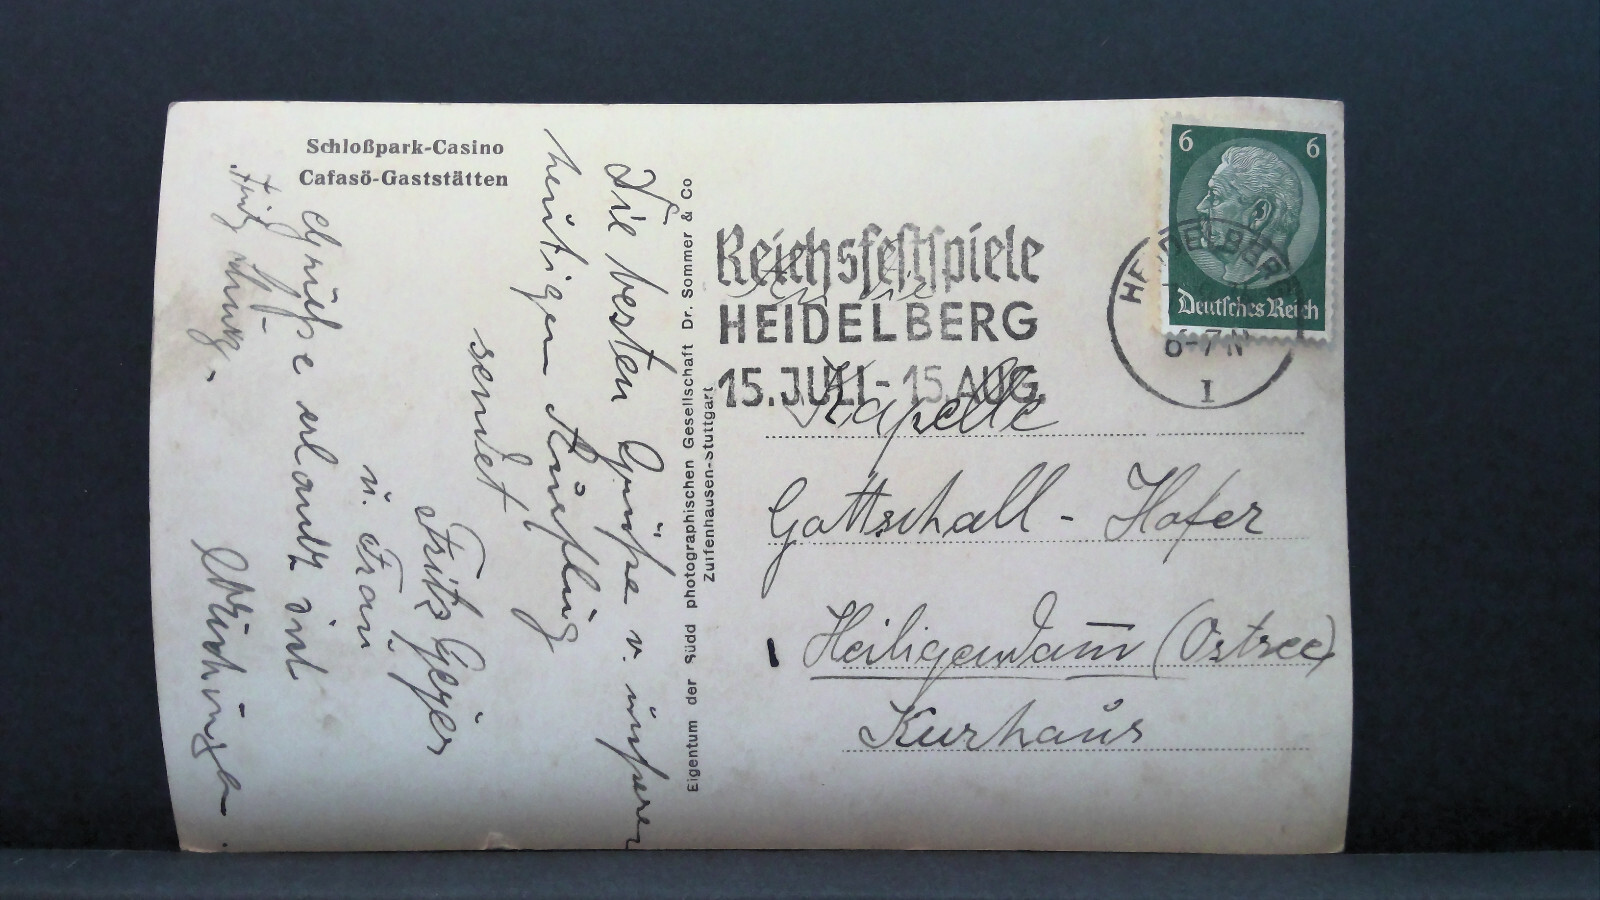 Schloßpark-Casino
Cafasö-Gaststätten
Die besten Grüße v. unserer
heutigen Ausflug
sendet
Fritz Geyer
u. Frau
Grüße erlaubt sich
Eigentum der Südd photographischen Gesellschaft Dr. Sommer & Co
Zuffenhausen-Stuttgart
6 6
Deutsches Reich
HEIDELBERG
6-7 N
1
Reichsfestspiele
HEIDELBERG
15. JULI - 15. AUG.
An die
Kapelle
Gottschall - Hofer
Heiligendam̅ (Ostsee)
Kurhaus